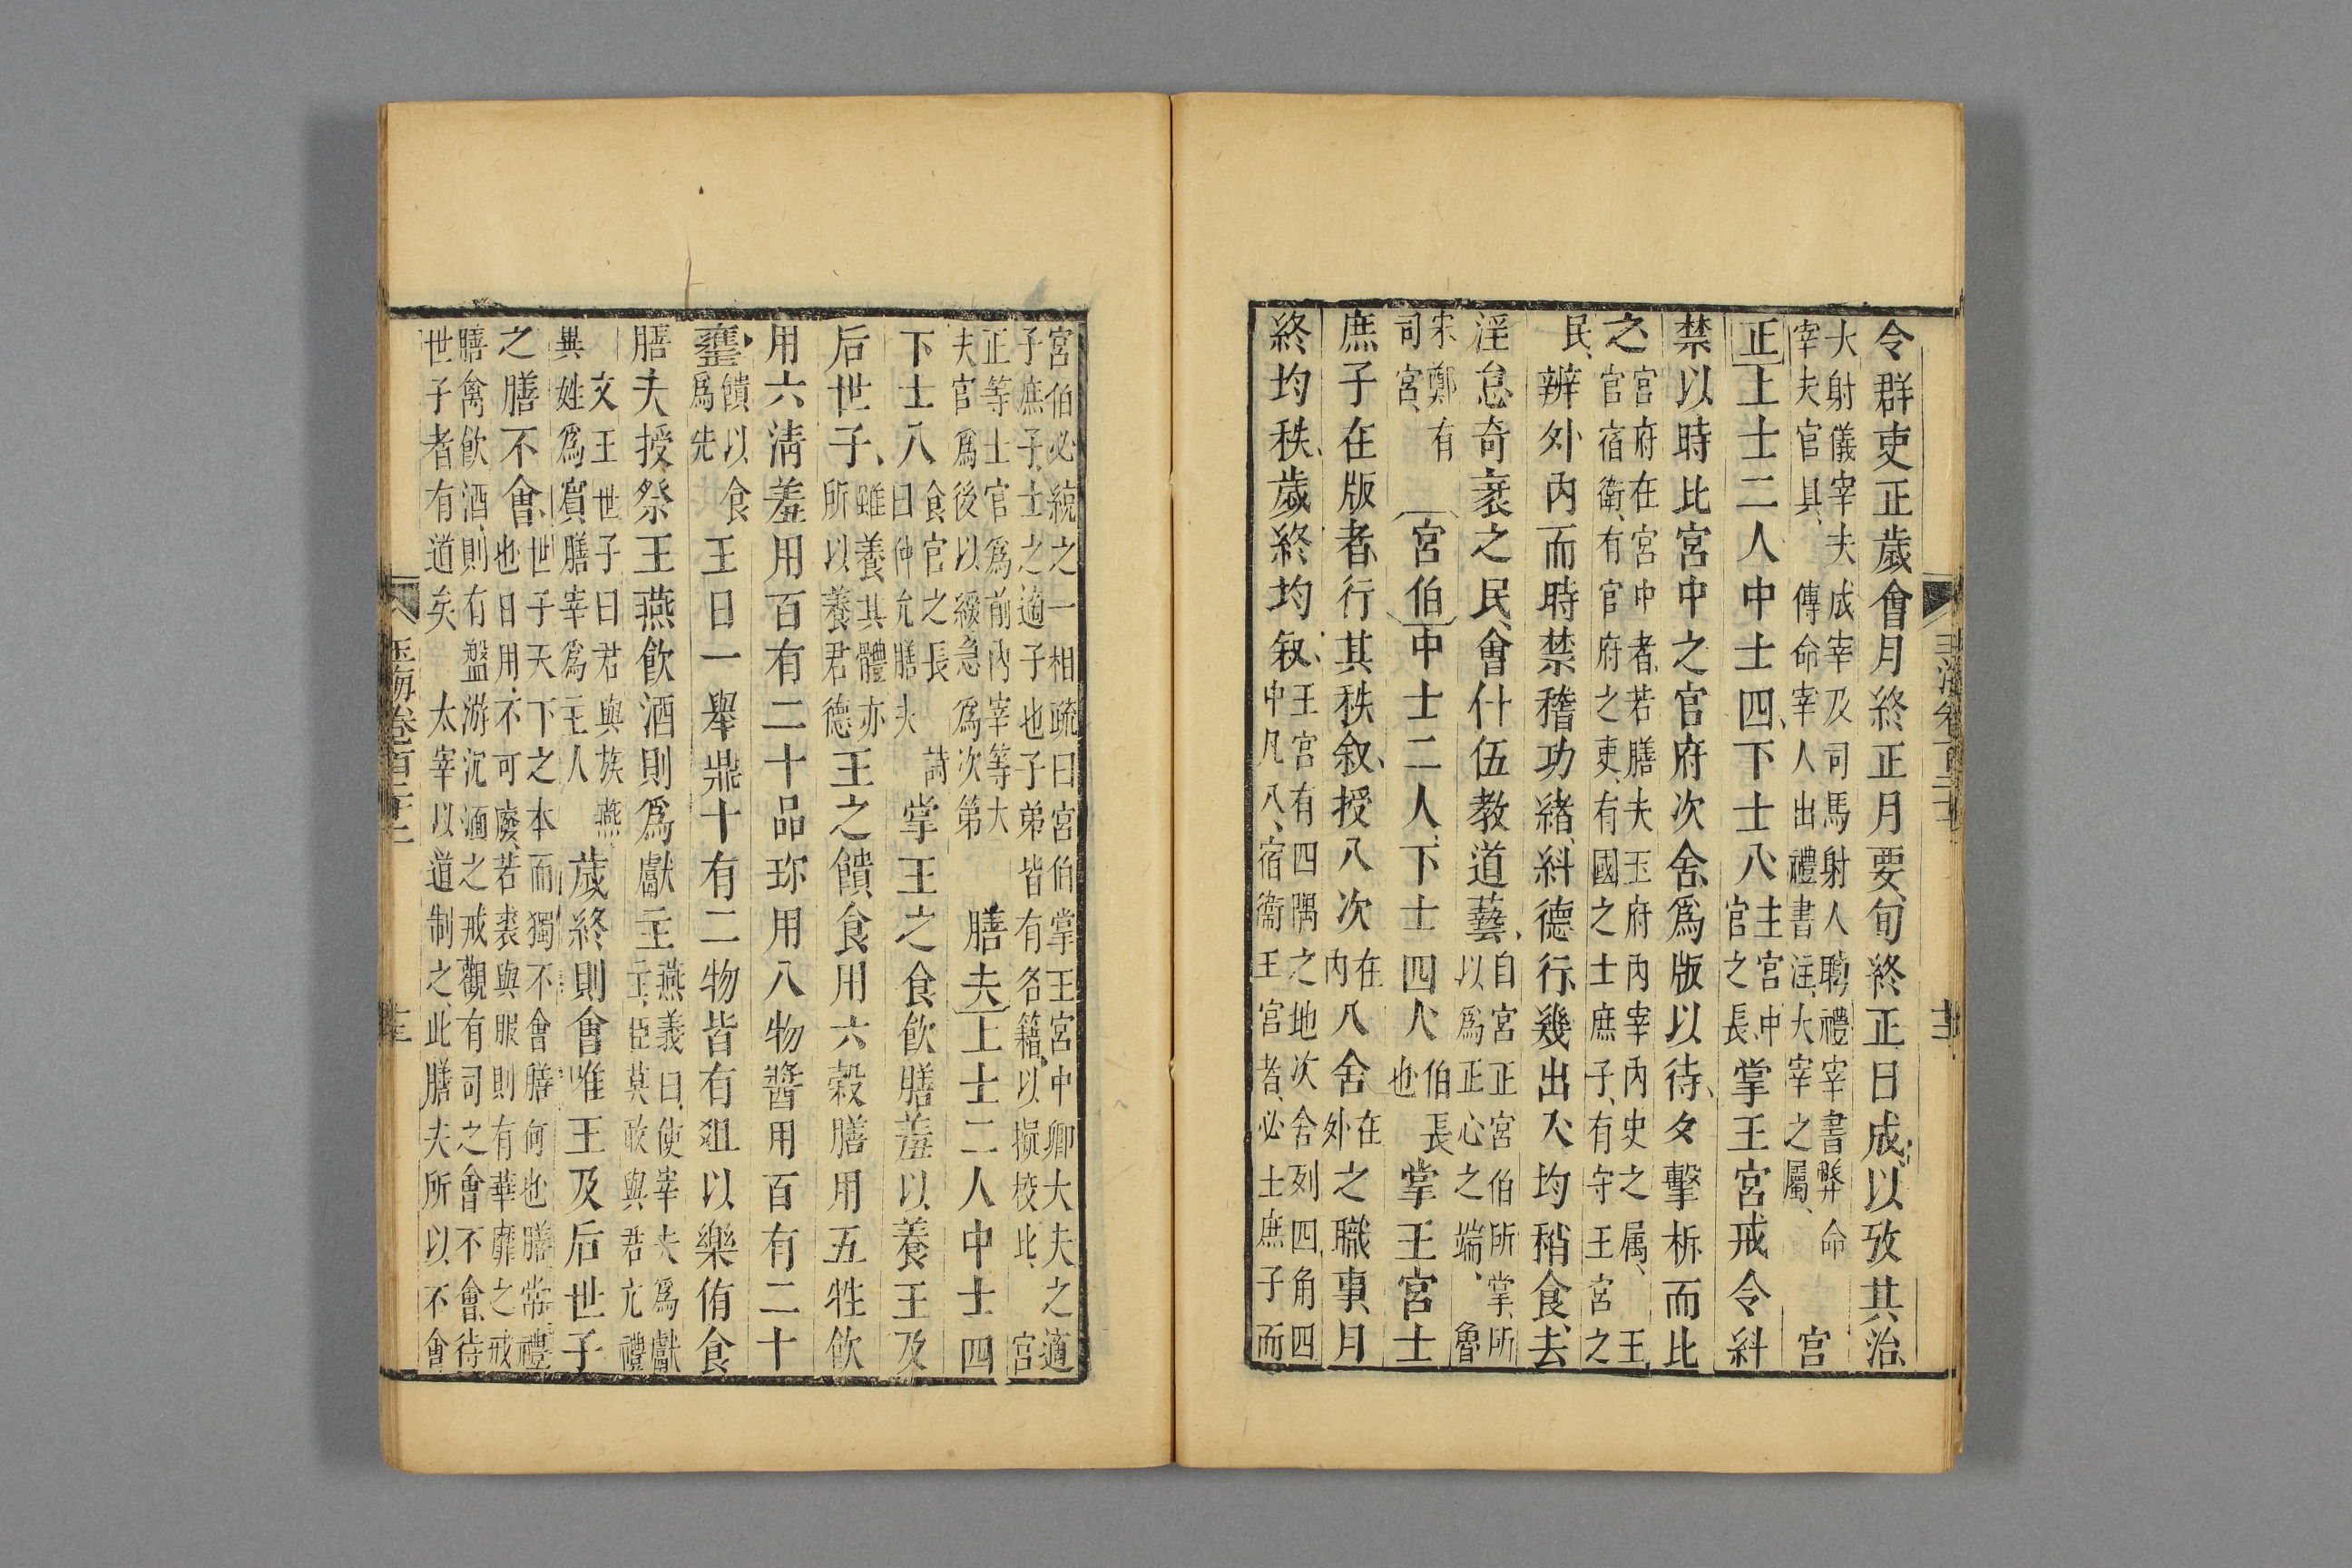 令群吏正歲會月終正月要旬終正日成以攷其治
大射儀宰夫戒宰及司馬射人聘禮宰書幣命
宰夫官具　傳命宰人出禮書注大宰之屬　宮
正上士二人中士四下士八主宮中官之長掌王宮戒令糾
禁以時比宮中之官府次舍爲版以待夕擊柝而比
之宮府在宮中者若膳夫玉府内宰内史之属　王
官宿衛有官府之吏有國之士庶子有守王宮之
民辨外内而時禁稽功緒糾德行幾出入均稍食去
淫怠奇衺之民會什伍教道藝自宮正宮伯所掌所以爲正心之端　魯
宋鄭有司宮　宮伯中士二人下士四人伯長也掌王宮士
庶子在版者行其秩叙授八次在内八舍在外之職事月
終均秩歲終均叙王宮有四隅之地次舍列四角四
中凡八宿衞王宮者必士庶子而
宮伯必統之一相疏曰宮伯掌王宮中卿大夫之適
子庶子士之適子也子弟皆有名籍以損校此　宮
正等士官爲前内宰等大
夫官爲後以緩急爲次第　膳夫上士二人中士四
下士八食官之長　詩曰仲允膳夫掌王之食飲膳羞以養王及
后世子雖養其體亦所以養君德王之饋食用六穀膳用五牲飲
用六淸羞用百有二十品珎用八物醬用百有二十
罋饋以食爲先王日一舉鼎十有二物皆有俎以樂侑食
膳夫授祭王燕飲酒則爲獻主燕義曰使宰夫爲獻主臣莫敢與君亢禮
文王世子曰君與族燕
異姓爲賓膳宰爲主人　歲終則會唯王及后世子
之膳不會世子天下之本而獨不會膳何也膳常禮
也日用不可廢若裘與服則有華靡之戒
膳禽飲酒則有盤游沉湎之戒觀有司之會不會待
世子者有道矣　太宰以道制之此膳夫所以不會